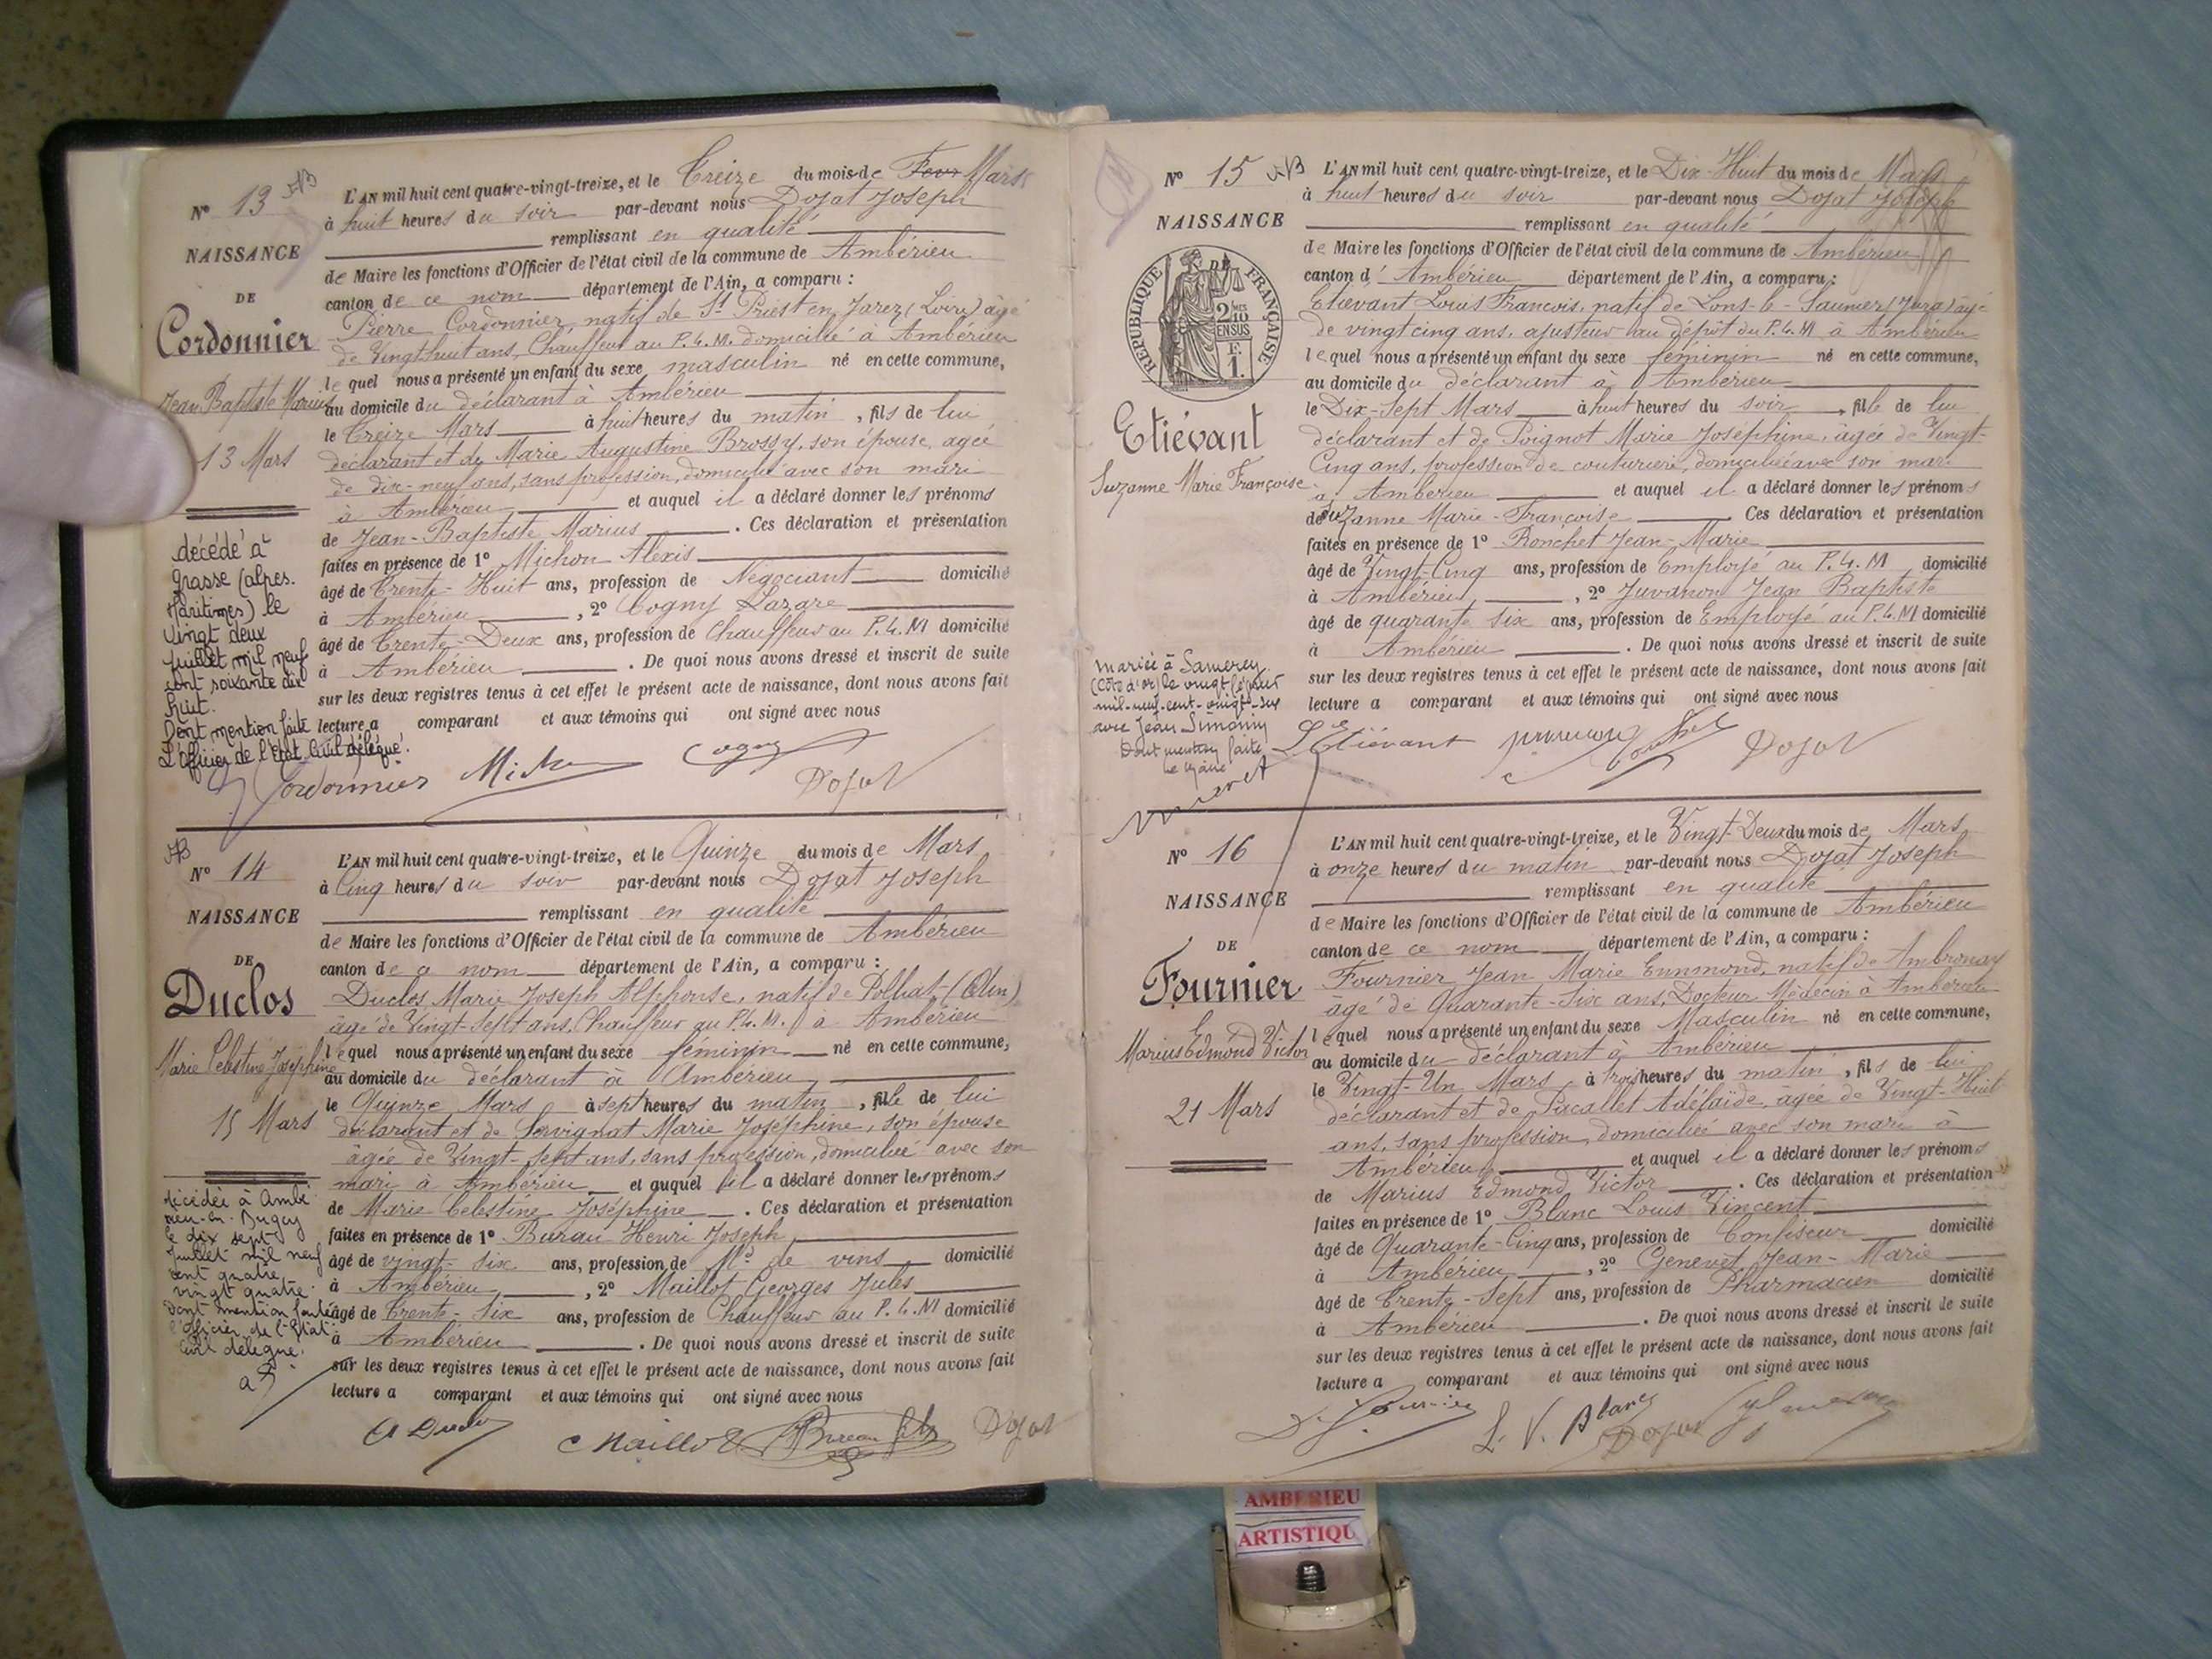 N° 13
NAISSANCE
DE
Cordonnier
Jean Baptiste Marius
13 Mars
décédé à
Grasse (Alpes.
Maritimes) le
vingt deux
juillet mil neuf
cent soixante dix
huit.
Dont mention faite
L'Officier de l'Etat Civil délégué.
L'AN mil huit cent quatre-vingt-treize, et le Treize du mois de Mars
à huit heures du soir par-devant nous Dojat Joseph
remplissant en qualité
de Maire les fonctions d'Officier de l'état civil de la commune de Ambérieu
canton de ce nom département de l'Ain, a comparu :
Pierre Cordonnier, natif de St Priest en Jarez (Loire) âgé
de Vingt huit ans, Chauffeur au P.L.M. domicilié à Ambérieu
lequel nous a présenté un enfant du sexe masculin né en cette commune,
au domicile du déclarant à Ambérieu
le Treize Mars à huit heures du matin, fils de lui
déclarant et de Marie Augustine Brossy, son épouse, agée
de dix-neuf ans, sans profession, domiciliée avec son mari
à Ambérieu et auquel il a déclaré donner les prénoms
de Jean-Baptiste Marius. Ces déclaration et présentation
faites en présence de 1° Michon Alexis
âgé de Trente-Huit ans, profession de Négociant domicilié
à Ambérieu, 2° Cogny Lazare
âgé de Trente-Deux ans, profession de Chauffeur au P.L.M domicilié
à Ambérieu. De quoi nous avons dressé et inscrit de suite
sur les deux registres tenus à cet effet le présent acte de naissance, dont nous avons fait
lecture a comparant et aux témoins qui ont signé avec nous
Cordonnier Cogny Dojat
N° 14
NAISSANCE
DE
Duclos
Marie Célestine Joséphine
15 Mars
décédée à Ambé
rieu-en-Bugey
le dix sept
juillet mil neuf
cent quatre
vingt quatre.
dont mention faite
l'officier de l'Etat
Civil délégué.
L'AN mil huit cent quatre-vingt-treize, et le Quinze du mois de Mars
à Cinq heures du soir par-devant nous Dojat Joseph
remplissant en qualité
de Maire les fonctions d'Officier de l'état civil de la commune de Ambérieu
canton de ce nom département de l'Ain, a comparu :
Duclos Marie Joseph Alphonse, natif de Polliat (Ain)
âgé de Vingt-Sept ans, Chauffeur au P.L.M. à Ambérieu
lequel nous a présenté un enfant du sexe féminin né en cette commune,
au domicile du déclarant à Ambérieu
le Quinze Mars à sept heures du matin, fille de lui
déclarant et de Servignat Marie Joséphine, son épouse
âgée de Vingt-Sept ans, sans profession, domiciliée avec son
mari à Ambérieu et auquel il a déclaré donner les prénoms
de Marie Célestine Joséphine. Ces déclaration et présentation
faites en présence de 1° Bureau Henri Joseph
âgé de vingt-six ans, profession de Md de vins domicilié
à Ambérieu, 2° Maillot Georges Jules
âgé de Trente-Six ans, profession de Chauffeur au P.L.M domicilié
à Ambérieu. De quoi nous avons dressé et inscrit de suite
sur les deux registres tenus à cet effet le présent acte de naissance, dont nous avons fait
lecture a comparant et aux témoins qui ont signé avec nous
A Duclos Maillot Bureau fils Dojat
N° 15
NAISSANCE
RÉPUBLIQUE FRANÇAISE
2/10 EN SUS
F.
1.
Etiévant
Suzanne Marie Françoise
mariée à Samerey
(Côte d'or) le vingt
mil-neuf-cent-vingt-six
avec Jean Simonin
Dont mention faite
Le Maire
L'AN mil huit cent quatre-vingt-treize, et le Dix-Huit du mois de Mars
à huit heures du soir par-devant nous Dojat Joseph
remplissant en qualité
de Maire les fonctions d'Officier de l'état civil de la commune de Ambérieu
canton d'Ambérieu département de l'Ain, a comparu :
Etievant Louis François, natif de Lons-le-Saunier (Jura) âgé
de vingt cinq ans, ajusteur au dépôt du P.L.M à Ambérieu
lequel nous a présenté un enfant du sexe féminin né en cette commune,
au domicile du déclarant à Ambérieu
le Dix-Sept Mars à huit heures du soir, fille de lui
déclarant et de Poignot Marie Joséphine, âgée de Vingt-
Cinq ans, profession de couturière, domiciliée avec son mari
à Ambérieu et auquel il a déclaré donner les prénoms
de Suzanne Marie-Françoise. Ces déclaration et présentation
faites en présence de 1° Ronchet Jean-Marie
âgé de Vingt-Cinq ans, profession de Employé au P.L.M domicilié
à Ambérieu, 2° Juvanon Jean Baptiste
âgé de quarante six ans, profession de Employé au P.L.M domicilié
à Ambérieu. De quoi nous avons dressé et inscrit de suite
sur les deux registres tenus à cet effet le présent acte de naissance, dont nous avons fait
lecture a comparant et aux témoins qui ont signé avec nous
L Etiévant Dojat
N° 16
NAISSANCE
DE
Fournier
Marius Edmond Victor
21 Mars
L'AN mil huit cent quatre-vingt-treize, et le Vingt-Deux du mois de Mars
à onze heures du matin par-devant nous Dojat Joseph
remplissant en qualité
de Maire les fonctions d'Officier de l'état civil de la commune de Ambérieu
canton de ce nom département de l'Ain, a comparu :
Fournier Jean Marie Ennmond, natif de Ambronay
âgé de Quarante-Six ans, Docteur Médecin à Ambérieu
lequel nous a présenté un enfant du sexe Masculin né en cette commune,
au domicile du déclarant à Ambérieu
le Vingt-Un Mars à trois heures du matin, fils de lui
déclarant et de Pacallet Adélaïde, âgée de Vingt-Huit
ans, sans profession, domiciliée avec son mari à
Ambérieu et auquel il a déclaré donner les prénoms
de Marius Edmond Victor. Ces déclaration et présentation
faites en présence de 1° Blanc Louis Vincent
âgé de Quarante-Cinq ans, profession de Confiseur domicilié
à Ambérieu, 2° Genevet Jean-Marie
âgé de Trente-Sept ans, profession de Pharmacien domicilié
à Ambérieu. De quoi nous avons dressé et inscrit de suite
sur les deux registres tenus à cet effet le présent acte de naissance, dont nous avons fait
lecture a comparant et aux témoins qui ont signé avec nous
Dr Fournier L. V. Blanc Dojat
AMBERIEU
ARTISTIQU